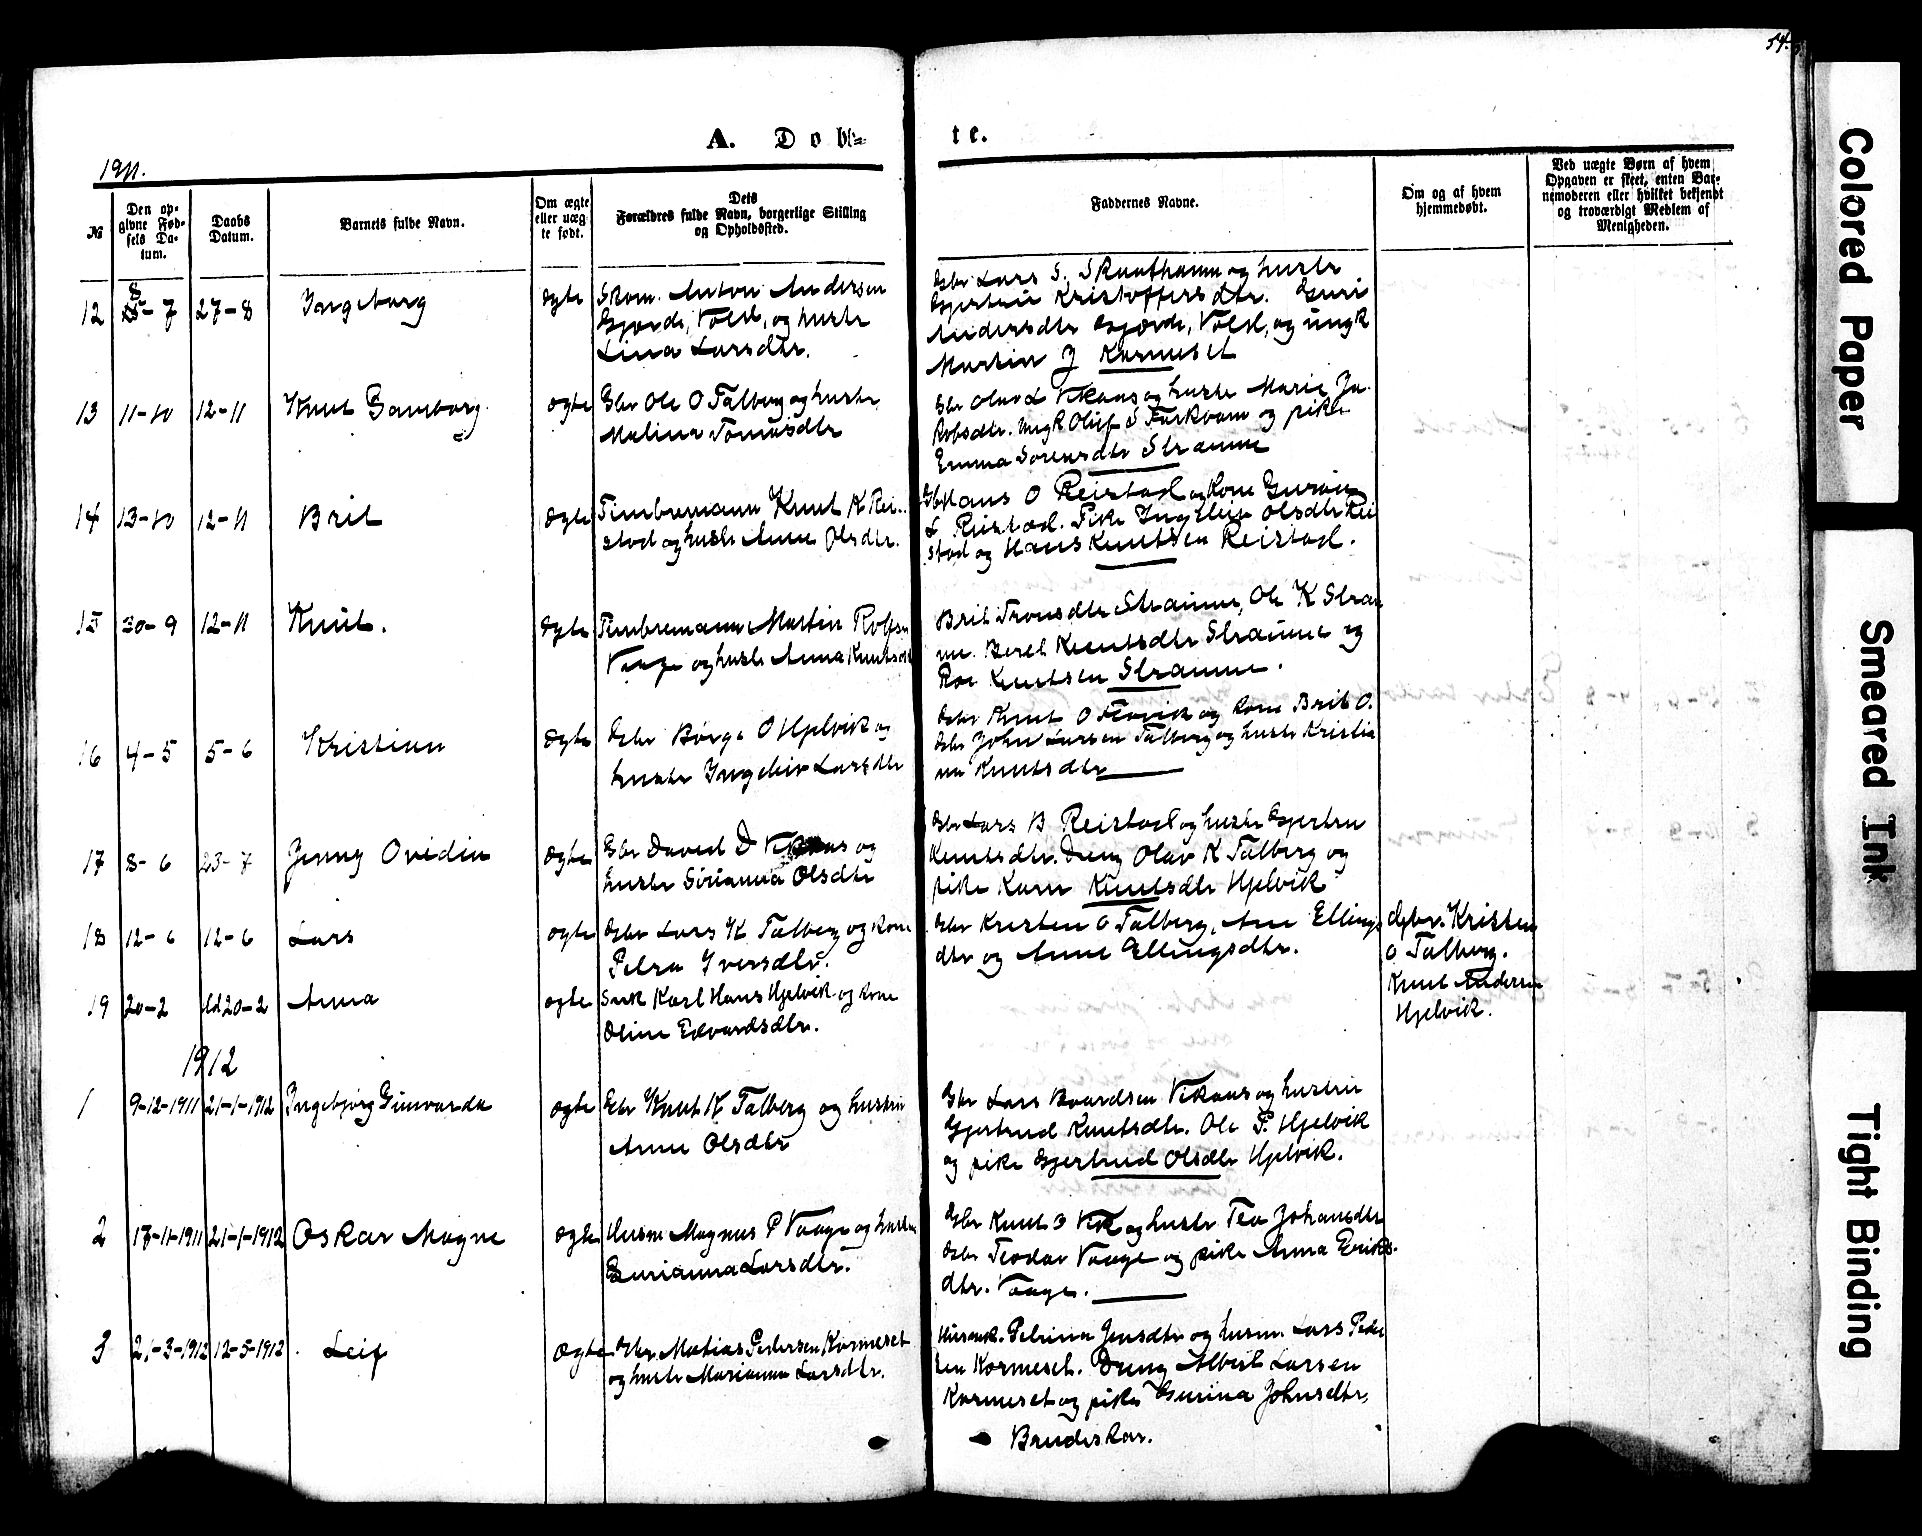 54.
A. Dob=
te.
1911.
No
Den op-
givne Fød-
sels Da-
tum.
Daabs
Datum.
Barnets fulde Navn.
Om ægte
eller uæg-
te født.
Dets
Forældres fulde Navn, borgerlige Stilling
og Opholdssted.
Faddernes Navne.
Om og af hvem
hjemmedøbt.
Ved uægte Børn af hvem
Opgaven er skeet, enten Bar-
nemoderen eller hvilket bekjendt
og troværdigt Medlem af
Menigheden.
12 8-7 27-8 Ingeborg ægte
Skom. Anton Andersen
Gjærde, Vold, og hustr
Lina Larsdtr.
Gbr Lars S. og hustr
Kristoffersdtr. Guri
Andersdtr Gjærde, Vold, og ungk
Martin J Karmeset
13 11-10 12-11 Knut ægte
Gbr Ole O Talberg og hustr
Malina Tomasdtr
Gbr Olav L Vikaas og hustr Marie Ja-
kobsdtr. Ungk Oluf S og pike
Emma Sorensdtr Straume
14 13-10 12-11 Brit ægte
Tømbremann Knut K Rei-
stad og hustr Anne Olsdtr.
Gbr Hans O Reistad og kone
L Reistad. Pike Olsdtr Rei
stad og Hans Knutsen Reistad.
15 30-9 12-11 Knut. ægte
Tømbremann Martin
Vaage og hustr Anna
Brit Straume, Ole K Strau
me. Beret Knutsdtr Straume og
Roe Knutsen Straume.
16 4-5 5-6 Kristian ægte
Gbr Børge O Hjelvik og
hustr Larsdtr
Gbr Knut O og kone Brit O.
Gbr John Larsen Talberg og hustr Kristia
na Knutsdtr
17 8-6 23-7 Jenny Ovidia ægte
Gbr David D Vikaas og
hustr Olsdtr
Gbr Lars B Reistad og hustr
Knutsdtr. Dreng Olav K Talberg og
pike Karn Knutsdtr Hjelvik
18 12-6 12-6 Lars ægte
Gbr Lars K Talberg og kone
Petra Iversdtr.
Gbr Kristen O Talberg, Ane Ellings
dtr og Anne Ellingsdtr.
Gbr. Kristen
O Talberg.
19 20-2 20-2 Anna ægte
Karl Hans Hjelvik og kone
Oline Edvardsdtr.
Knut Andersen
Hjelvik.
1912
1 9-12-1911 21-1-1912 Ingebjørg Gunvarda ægte
Gbr Knut K Talberg og hustru
Anne Olsdtr
Gbr Lars Baardsen Vikaas og hustru
Gjertrud Knutsdtr. Ole P. Hjelvik
og pike Gjertrud Olsdtr Hjelvik.
2 21-1-1912 Oskar Magne ægte
Husm Magnus P Vaage og hustru
Gurianna Larsdtr.
Gbr Knut O Vik og hustr Tea Johansdtr
Gbr Teodor Vaage og pike Anna Eriks-
dtr. Vaage.
3 21-3-1912 12-5-1912 Leif ægte
Gbr. Matias Pedersen Karmeset
og hustr Marianna Larsdtr.
Petrina Jensdtr og husm. Lars Peder
sen Karmeset. Dreng Albert Larsen
Karmeset og pike Gurina Johnsdtr,
Brudeskar.
Colored Paper
Smeared Ink
Tight Binding